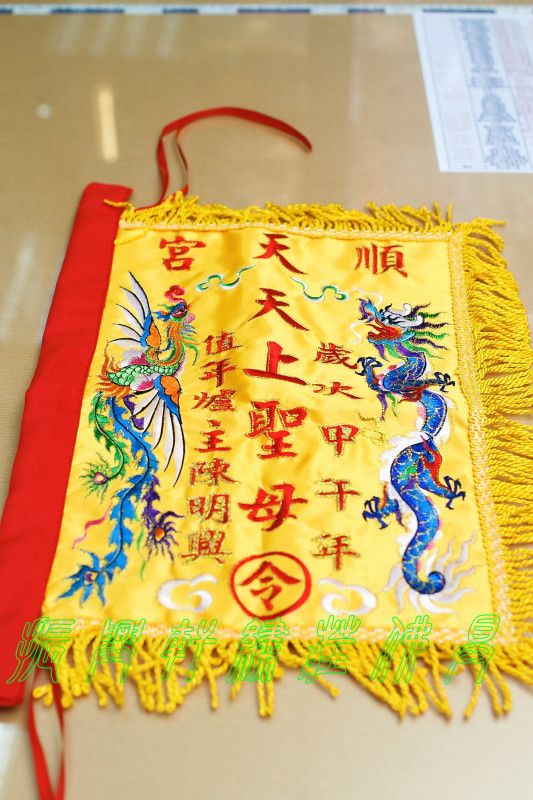 順天宮
歲次甲午年
天上聖母
令
值年爐主陳明興
振興軒繡莊佛具